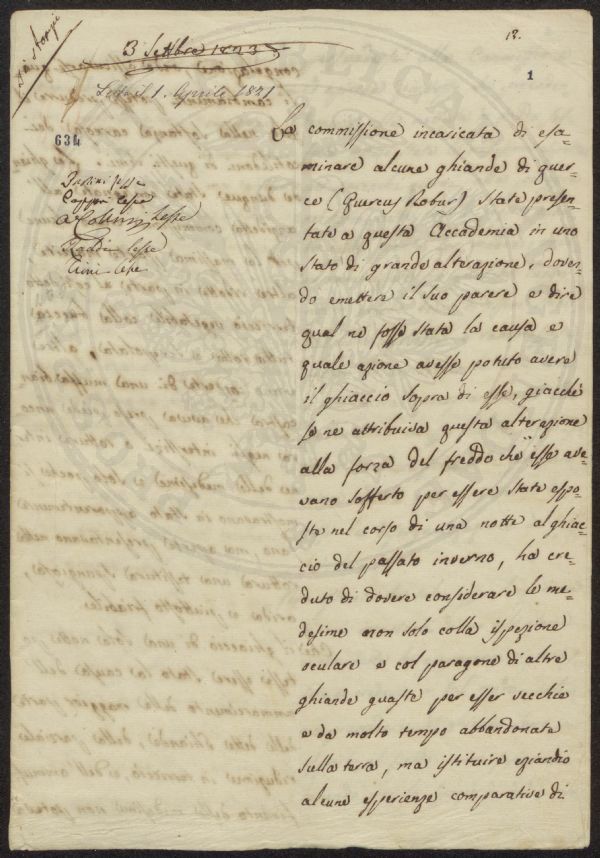 3 Settbre 1823
Letta il 1. Aprile 1821
12.
1
634
La commissione incaricata di esa-
minare alcune ghiande di quer-
ce (Quercus Robur) State presen-
tate a questa Accademia in uno
Stato di grande alterazione, doven-
do emettere il suo parere e dire
qual ne fosse stata la causa e
quale azione avesse potuto avere
il ghiaccio sopra di esse, giacchè
se ne attribuiva questa alterazione
alla forza del freddo che esse ave-
vano sofferto per essere State espo-
ste nel corso di una notte al ghiac-
cio del passato inverno, ha cre-
duto di dovere considerare le me-
desime non solo colla ispezione
oculare e col paragone di altre
ghiande guaste per esser vecchie
e da molto tempo abbandonate
sulla terra, ma istituire eziandio
alcune esperienze comparative di